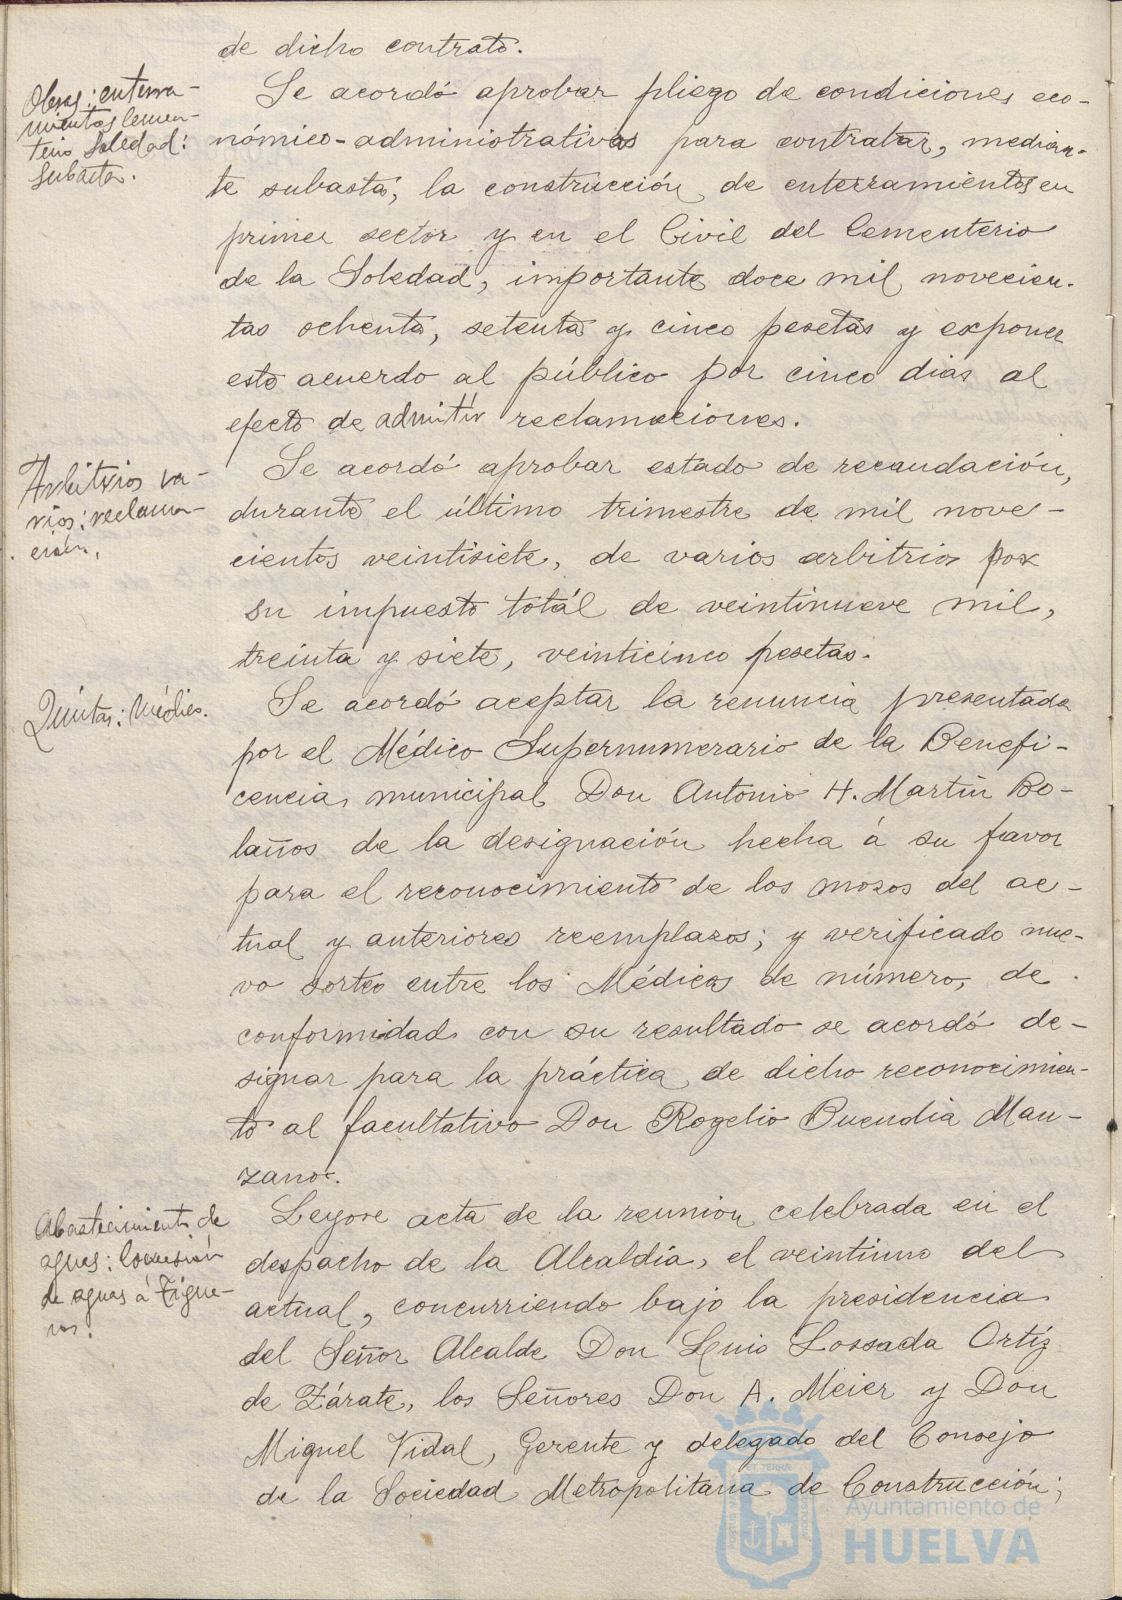 de dicho contrato.
Obras; enterra-
mientos Cemen-
terio Soledad:
Subasta.
Se acordó aprobar pliego de condiciones eco-
nómico-administrativas para contratar, median-
te subasta, la construcción de enterramientos en
primer sector y en el Civil del Cementerio
de la Soledad, importante doce mil novecien-
tas ochenta, setenta y cinco pesetas y exponer
este acuerdo al público por cinco dias al
efecto de admitir reclamaciones.
Arbitrios va-
rios; reclama-
ción.
Se acordó aprobar estado de recaudación,
durante el último trimestre de mil nove-
cientos veintisiete, de varios arbitrios por
su impuesto totál de veintinueve mil,
treinta y siete, veinticinco pesetas.
Quintas; Médico.
Se acordó aceptar la renuncia presentada
por el Médico Supernumerario de la Benefi-
cencia municipal Don Antonio H. Martín Bo-
laños de la designación hecha á su favor
para el reconocimiento de los mozos del ac-
tual y anteriores reemplazos; y verificado nue-
vo sorteo entre los Médicos de número, de
conformidad con su resultado se acordó de-
signar para la práctica de dicho reconocimien-
to al facultativo Don Rogelio Buendia Man-
zano.
Abastecimiento de
aguas; Concesión
de aguas á Figue-
Leyose acta de la reunion celebrada en el
despacho de la Alcaldía, el veintiuno del
actual, concurriendo bajo la presidencia
del Señor Alcalde Don Luis Lossada Ortíz
de Zárate, los Señores Don A. Meier y Don
Miguel Vidal, Gerente y delegado del Consejo
de la Sociedad Metropolitana de Construcción;
Ayuntamiento de
HUELVA